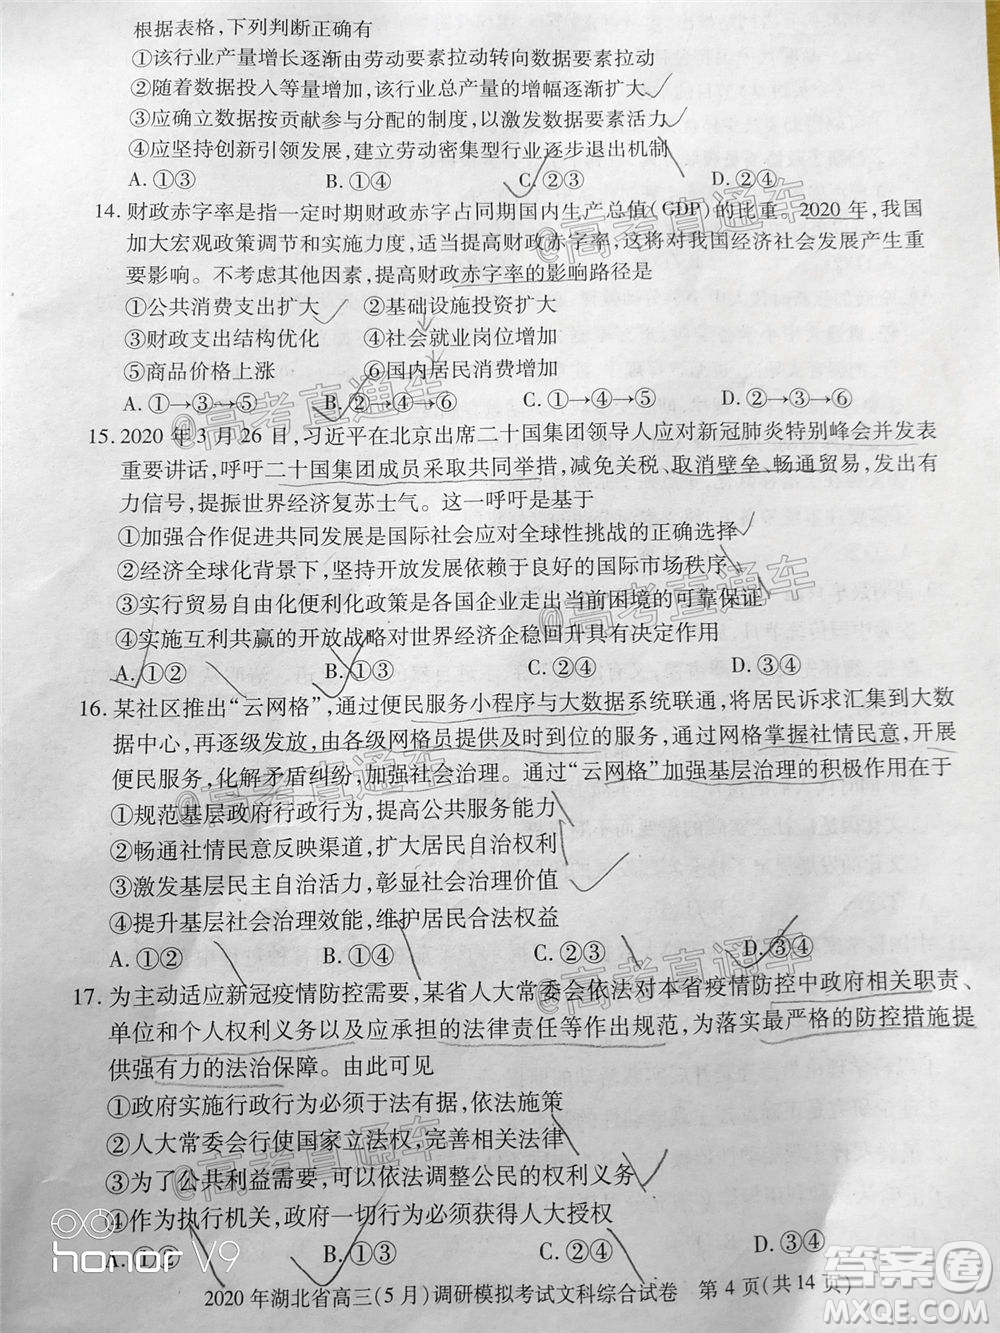 根据表格，下列判断正确有
①该行业产量增长逐渐由劳动要素拉动转向数据要素拉动
②随着数据投入等量增加，该行业总产量的增幅逐渐扩大
③应确立数据按贡献参与分配的制度，以激发数据要素活力
④应坚持创新引领发展，建立劳动密集型行业逐步退出机制
A.①③ B.①④ C.②③ D.②④
14.财政赤字率是指一定时期财政赤字占同期国内生产总值(GDP)的比重。2020年，我国
加大宏观政策调节和实施力度，适当提高财政赤字率，这将对我国经济社会发展产生重
要影响。不考虑其他因素，提高财政赤字率的影响路径是
①公共消费支出扩大 ②基础设施投资扩大
③财政支出结构优化 ④社会就业岗位增加
⑤商品价格上涨 ⑥国内居民消费增加
A.①→③→⑤ B.②→④→⑥ C.①→④→⑤ D.②→③→⑥
15.2020年3月26日，习近平在北京出席二十国集团领导人应对新冠肺炎特别峰会并发表
重要讲话，呼吁二十国集团成员采取共同举措，减免关税、取消壁垒、畅通贸易，发出有
力信号，提振世界经济复苏士气。这一呼吁是基于
①加强合作促进共同发展是国际社会应对全球性挑战的正确选择
②经济全球化背景下，坚持开放发展依赖于良好的国际市场秩序
③实行贸易自由化便利化政策是各国企业走出当前困境的可靠保证
④实施互利共赢的开放战略对世界经济企稳回升具有决定作用
A.①② B.①③ C.②④ D.③④
16.某社区推出“云网格”，通过便民服务小程序与大数据系统联通，将居民诉求汇集到大数
据中心，再逐级发放，由各级网格员提供及时到位的服务，通过网格掌握社情民意，开展
便民服务，化解矛盾纠纷，加强社会治理。通过“云网格”加强基层治理的积极作用在于
①规范基层政府行政行为，提高公共服务能力
②畅通社情民意反映渠道，扩大居民自治权利
③激发基层民主自治活力，彰显社会治理价值
④提升基层社会治理效能，维护居民合法权益
A.①② B.①④ C.②③ D.③④
17.为主动适应新冠疫情防控需要，某省人大常委会依法对本省疫情防控中政府相关职责、
单位和个人权利义务以及应承担的法律责任等作出规范，为落实最严格的防控措施提
供强有力的法治保障。由此可见
①政府实施行政行为必须于法有据，依法施策
②人大常委会行使国家立法权，完善相关法律
③为了公共利益需要，可以依法调整公民的权利义务
④作为执行机关，政府一切行为必须获得人大授权
A.①② B.①③ C.②④ D.③④
2020年湖北省高三(5月)调研模拟考试文科综合试卷 第4页(共14页)
honor V9
@高考直通车
@高考直通车
@高考直通车
@高考直通车
@高考直通车
@高考直通车
@高考直通车
答案圈
MXQE.COM